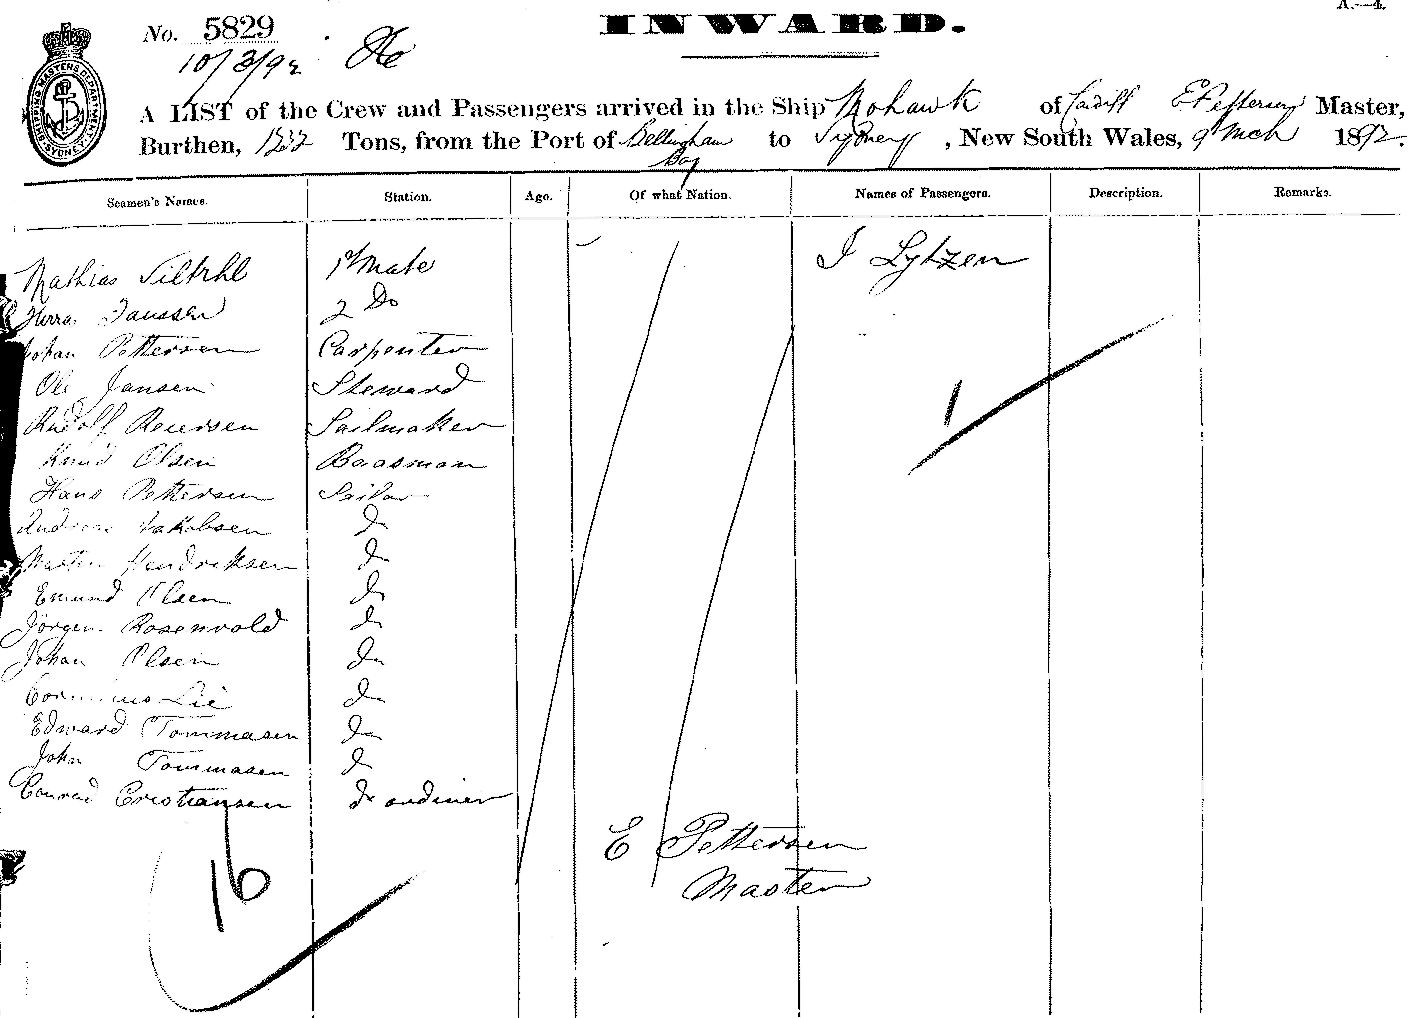 A.—4.
No. 5829
INWARD.
10/3/92
SHIPPING MASTERS DEPARTMENT SYDNEY
A LIST of the Crew and Passengers arrived in the Ship Mohawk of Cardiff E Pettersen Master,
Burthen, Tons, from the Port of Bellingham Bay to Sydney, New South Wales, 9 Mch 1892.
Seamen's Names. Station. Age. Of what Nation. Names of Passengers. Description. Remarks.
Mathias 1st Mate J Lytzen
Janssen 2 Do
Johan Pettersen Carpenter
Ole Jansen Steward
Rudolf Sailmaker
Knud Olsen Baasman
Hans Pettersen Sailor
Andreas Jakobsen do
Martin Hendriksen do
Emund Olsen do
Jörgen Rosenvold do
Johan Olsen do
Lie do
Edward Tommasen do
John Tommasen do
Conrad Cristiansen do ordiner
1
E Pettersen
Master
16